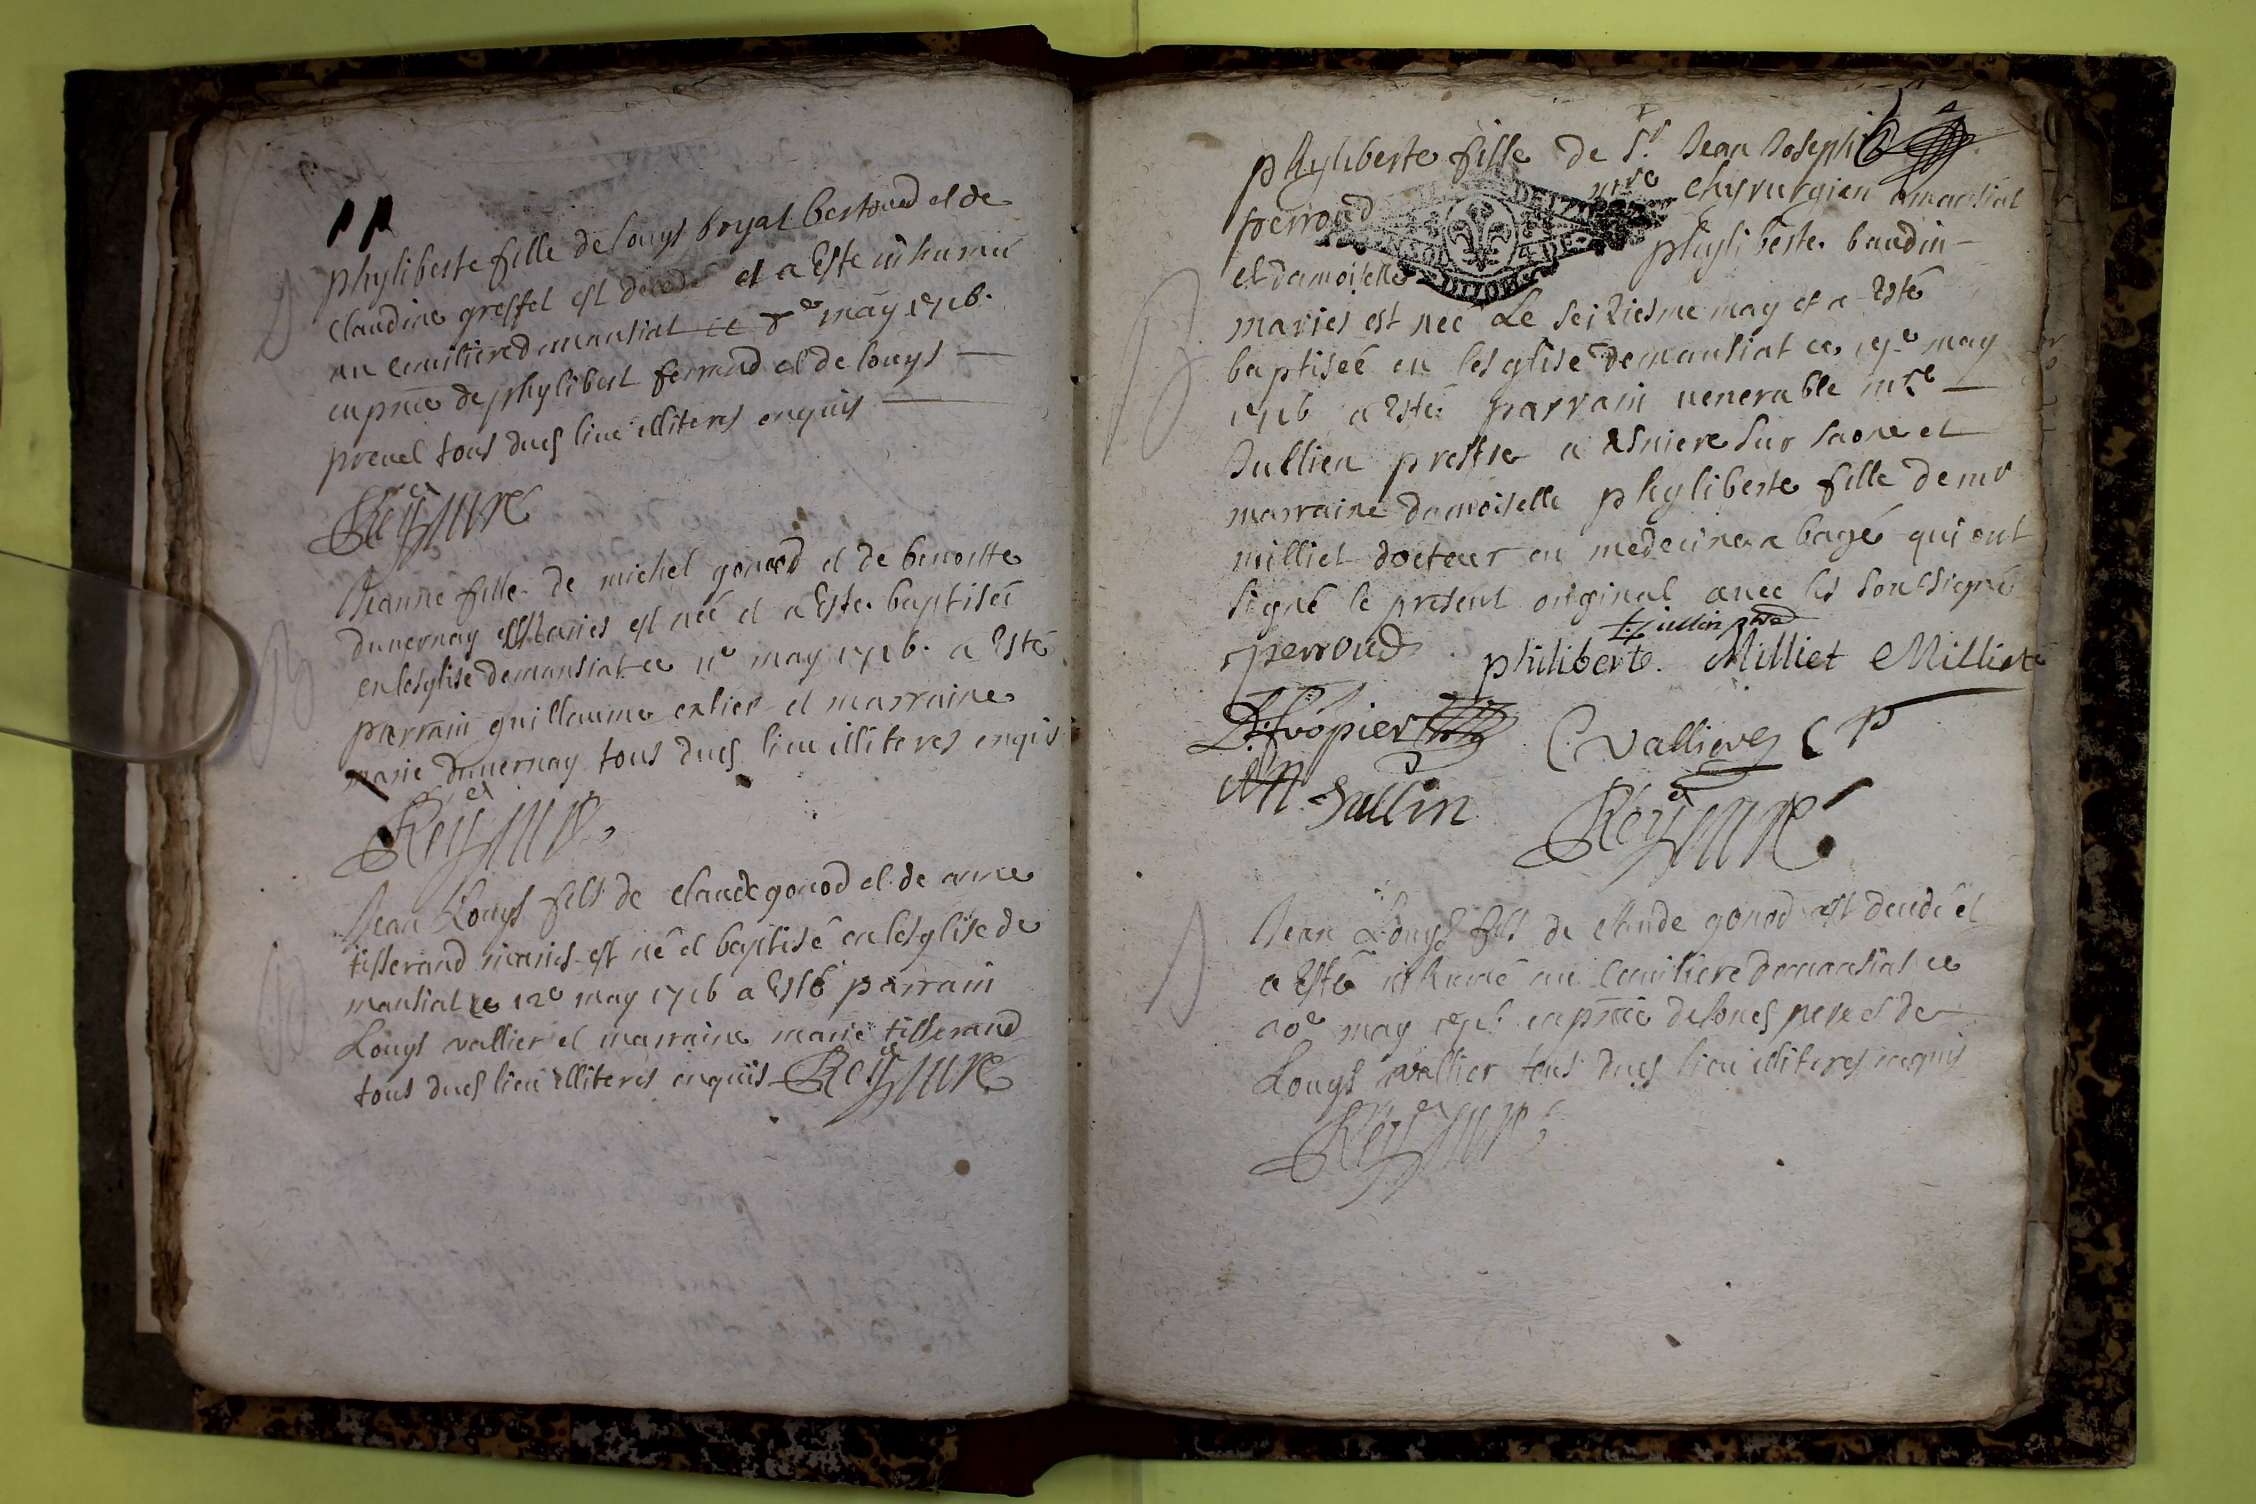 phyliberte fille de louys broyat bertoud et de
Claudine greffet est decedé et a Esté inhumé
au Cemitiere de mansiat ce 8e may 1716.
en pnce de phylibert ferrand et de louys
prevel tous dud lieu illiteres enquis
Rey curé
Jeanne fille de michel gonod et de benoitte
duvernay Maries est née et a Esté baptisée
en lesglise de mansiat ce 11e may 1716. a Esté
parrain guillaume et marraine
marie duvernay tous dud lieu illiteres enquis
Rey curé
Jean Louys fils de claude gonod et de anne
tisserand maries est né et baptisé en lesglise de
mansiat ce 12e may 1716 a Esté parrain
Louys vallier et marraine marie tisserand
tous dud lieu illiteres enquis Rey curé
phyliberte fille de Sr Jean Joseph
perroud mre chyrurgien a mansiat
et damoiselle phyliberte baudin
maries est née Le seiziesme may et a Esté
baptiseé en lesglise de mansiat ce 17e may
1716 a Esté parrain venerable mre
Jullien prestre a Asniere sur saone et
marraine damoiselle phyliberte fille de mr
milliet docteur en medecine a bagé qui ont
signé le present original avec les soussigné
perroud philiberte Milliet Milliet
C. vallier
Jullin
Rey curé
Jean Louys fils de claude gonod est decedé et
a Esté inhumé au Cemitiere de mansiat ce
20e may 1716 en pnce de sond pere et de
Louys vallier tous dud lieu illiteres enquis
Rey curé